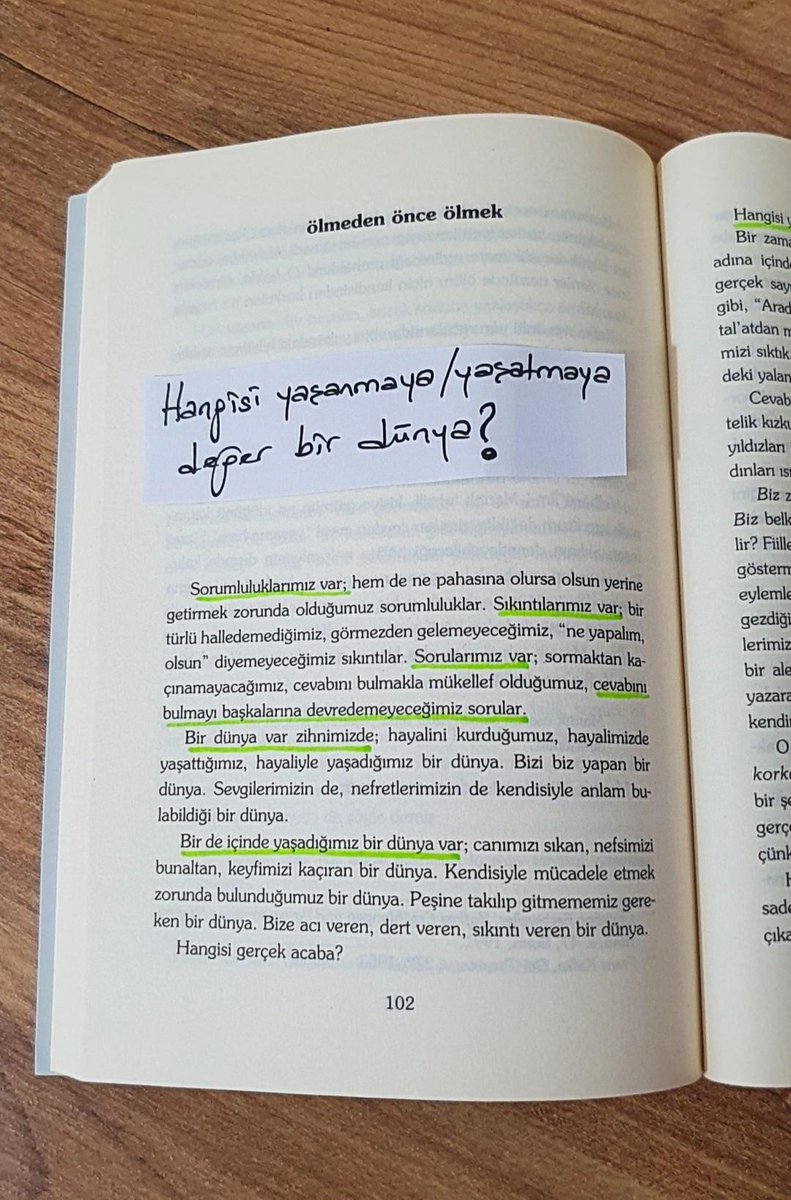 ölmeden önce ölmek
Hangisi yaşanmaya/yaşatmaya
değer bir dünya?
Sorumluluklarımız var; hem de ne pahasına olursa olsun yerine
getirmek zorunda olduğumuz sorumluluklar. Sıkıntılarımız var; bir
türlü halledemediğimiz, görmezden gelemeyeceğimiz, "ne yapalım,
olsun" diyemeyeceğimiz sıkıntılar. Sorularımız var; sormaktan ka-
çınamayacağımız, cevabını bulmakla mükellef olduğumuz, cevabını
bulmayı başkalarına devredemeyeceğimiz sorular.
Bir dünya var zihnimizde; hayalini kurduğumuz, hayalimizde
yaşattığımız, hayaliyle yaşadığımız bir dünya. Bizi biz yapan bir
dünya. Sevgilerimizin de, nefretlerimizin de kendisiyle anlam bu-
labildiği bir dünya.
Bir de içinde yaşadığımız bir dünya var; canımızı sıkan, nefsimizi
bunaltan, keyfimizi kaçıran bir dünya. Kendisiyle mücadele etmek
zorunda bulunduğumuz bir dünya. Peşine takılıp gitmememiz gere-
ken bir dünya. Bize acı veren, dert veren, sıkıntı veren bir dünya.
Hangisi gerçek acaba?
102
Hangisi
Bir
adına
gerçek
gibi, "Arad
tal'atdan
mizi sıktık
deki yalan
Cevab
telik
yıldızları
dınları
Biz
Biz belk
lir? Fiille
gösterm
eylemle
gezdiği
lerimiz
bir ale
yazara
kendi
O
korke
bir şe
gerç
çünk
sade
çıka